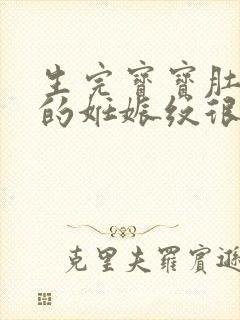 生完寶寶肚
的妊娠紋很
克里夫羅賓遜